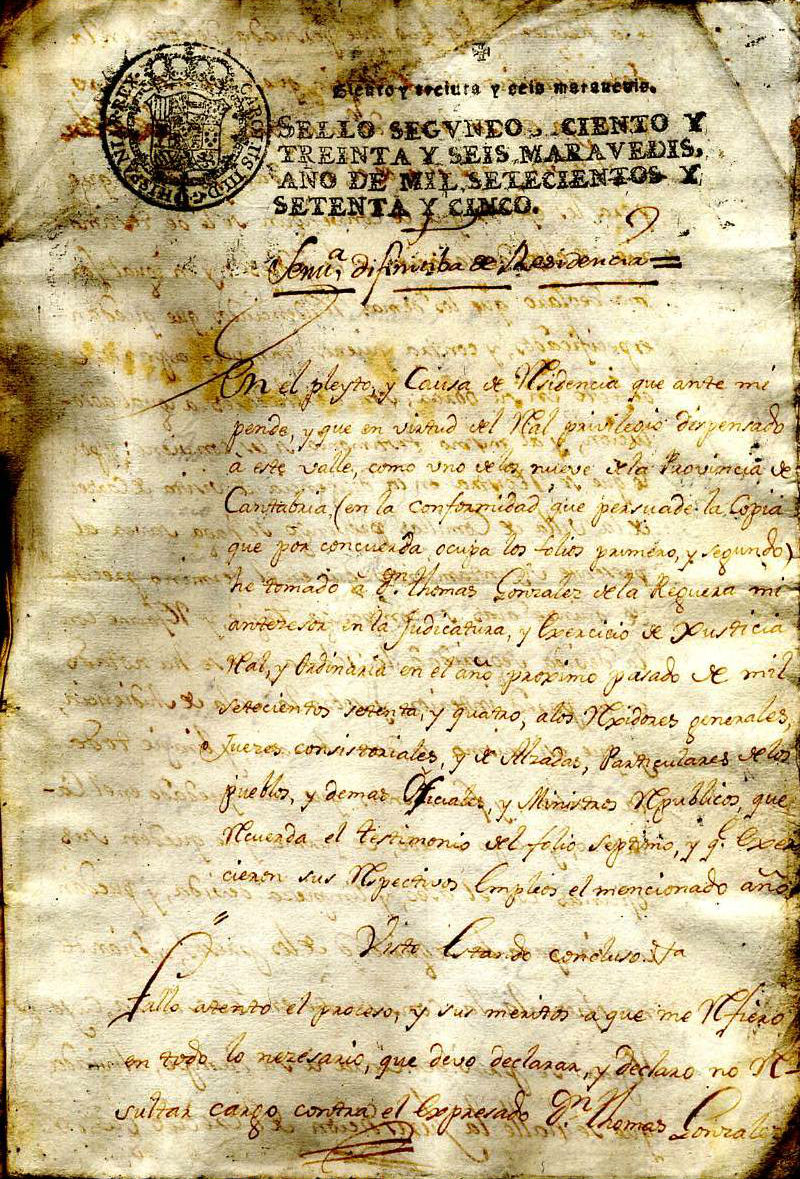 CAROLUS III D G HISPANIAR REX
Ciento y treinta y seis marauedis.
SELLO SEGVNDO, CIENTO Y
TREINTA Y SEIS MARAVEDIS,
AÑO DE MIL SETECIENTOS Y
SETENTA Y CINCO.
Sent.ª difinitiba de Residencia =
En el pleyto, y Causa de Rsidencia que ante mi
pende, y que en virtud del Ral privilegio dispensado
a este valle, como uno delos nueve dela Provincia de
Cantabria (en la conformidad que persuade la Copia
que por concuerda ocupa los folios primero, y segundo)
he tomado a Dn. Thomas Gonzalez dela Reguera mi
antezesor en la Judicatura, y Exercicio de Xusticia
Ral, y Ordinaria en el año proximo pasado de mil
setecientos setenta, y quatro, alos Rxidores generales,
Juezes consistoriales, y de Alzadas, Particulares delos
pueblos, y demas Oficiales, y Ministros Rpublicos, que
Rcuerda el testimonio del folio septimo, y q.e Exer
cieron sus Rspectivos Empleos el mencionado año
Visto Estando concluso
Fallo atento el proceso, y sus meritos a que me Rfiero
en todo lo nezesario, que devo declarar, y declaro no R-
sultar cargo contra el Expresado Dn Thomas Gonzalez